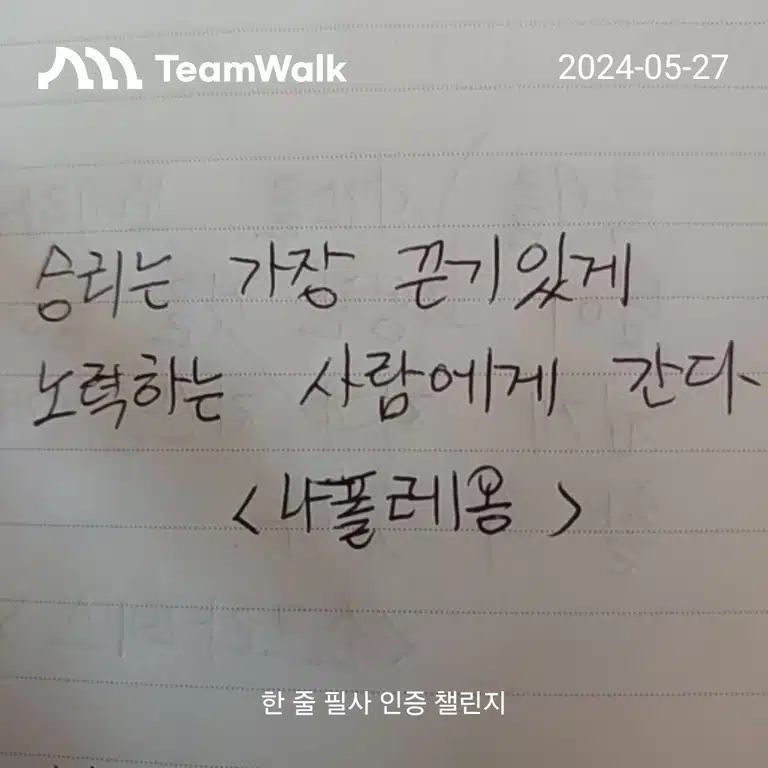 TeamWalk
2024-05-27
승리는 가장 끈기있게
노력하는 사람에게 간다
<나폴레옹>
한 줄 필사 인증 챌린지